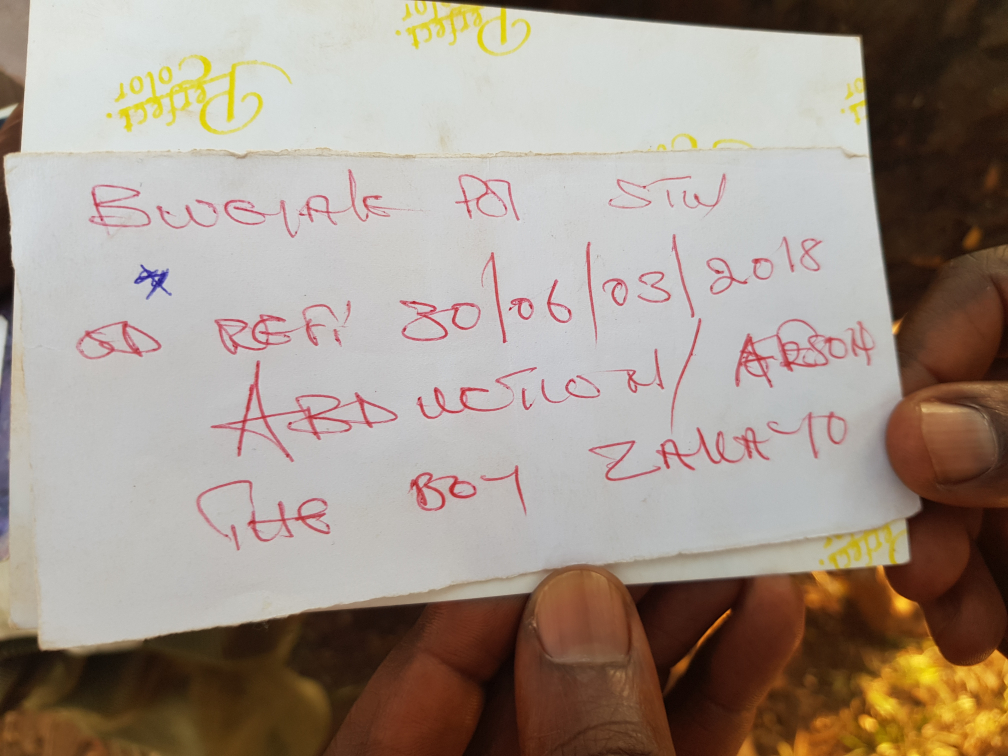 Perfect.
Color
Perfect.
Color
BWEYALE POST STN
SD REF: 30/06/03/2018
ABDUCTION / ARSON
THE BOY ZAKAYO
Perfect.